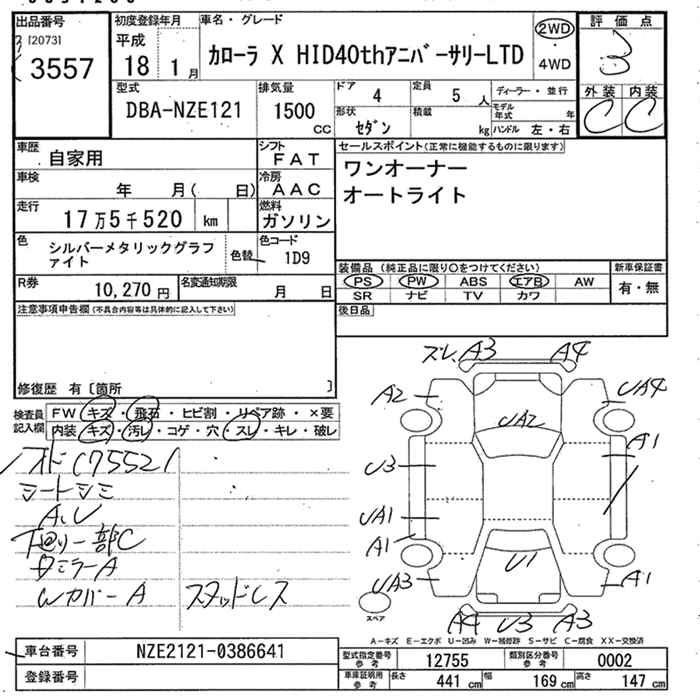 出品番号
[2073]
3557
初度登録年月
平成
18 1月
車名・グレード
カローラ X HID40thアニバーサリーLTD
2WD
・4WD
評価点
3
外装 内装
C C
型式
DBA-NZE121
排気量
1500
cc
ドア 4
定員 5 人
形状 セダン
積載 kg
ディーラー・並行
モデル年式 年
ハンドル 左・右
車歴
自家用
シフト
FAT
車検
年 月( 日)
冷房
AAC
走行
17万5千520 km
燃料
ガソリン
色
シルバーメタリックグラファイト
色替
色コード
1D9
R券
10,270 円
名変通知期限
月 日
セールスポイント(正常に機能するものに限ります)
ワンオーナー
オートライト
装備品 (純正品に限り○をつけてください)
PS PW ABS エアB AW
SR ナビ TV カワ
新車保証書
有・無
後日品
注意事項申告欄(不具合内容等は具体的に記入して下さい)
修復歴 有〔箇所 〕
検査員記入欄
FW キズ・飛石・ヒビ割・リペア跡・×要
内装 キズ・汚レ・コゲ・穴・スレ・キレ・破レ
シートシミ
A,U
下回り一部C
Wカバー A
スタッドレス
ズレ A3 A4
A2 UA4
UA2
U3 A1
UA1
A1
U1
UA3 A1
スペア
A4 U3 A3
A-キズ E-エクボ U-凹み W-補修跡 S-サビ C-腐食 XX-交換済
車台番号
NZE2121-0386641
登録番号
型式指定番号
参考
12755
類別区分番号
参考
0002
車庫証明用
参考
長さ 441 cm
幅 169 cm
高さ 147 cm